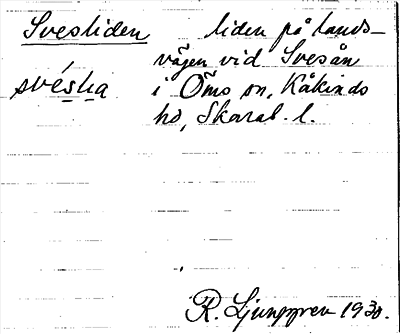 Svesliden liden på lands-
vägen vid Svesån
svésla i Öms sn, Kåkinds
hd, Skarab. l.
R. Ljunggren 1930.